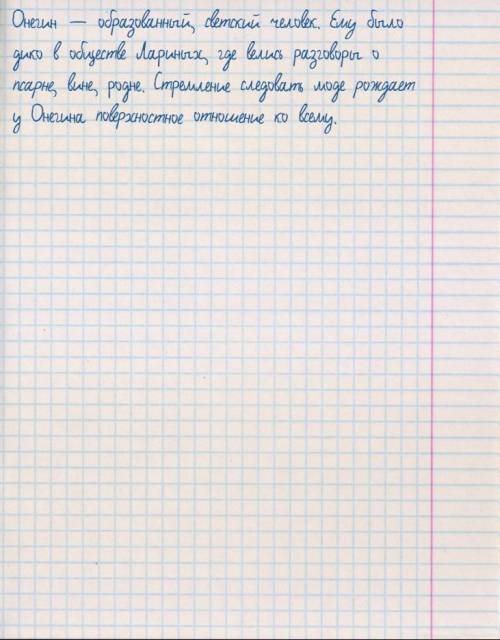 Онегин — образованный, светский человек. Ему было
дико в обществе Лариных, где велись разговоры о
псарне, вине, родне. Стремление следовать моде рождает
у Онегина поверхностное отношение ко всему.